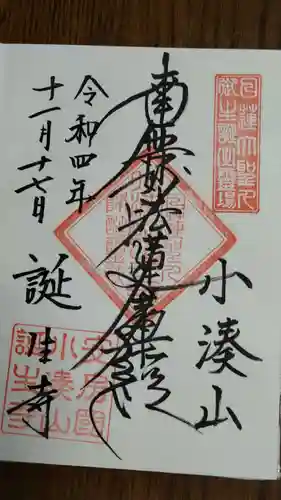 日蓮大聖人
御生誕之霊場
小湊山
南無妙法蓮華経
令和四年
十一月十七日
誕生寺
安房国
小湊山
誕生寺